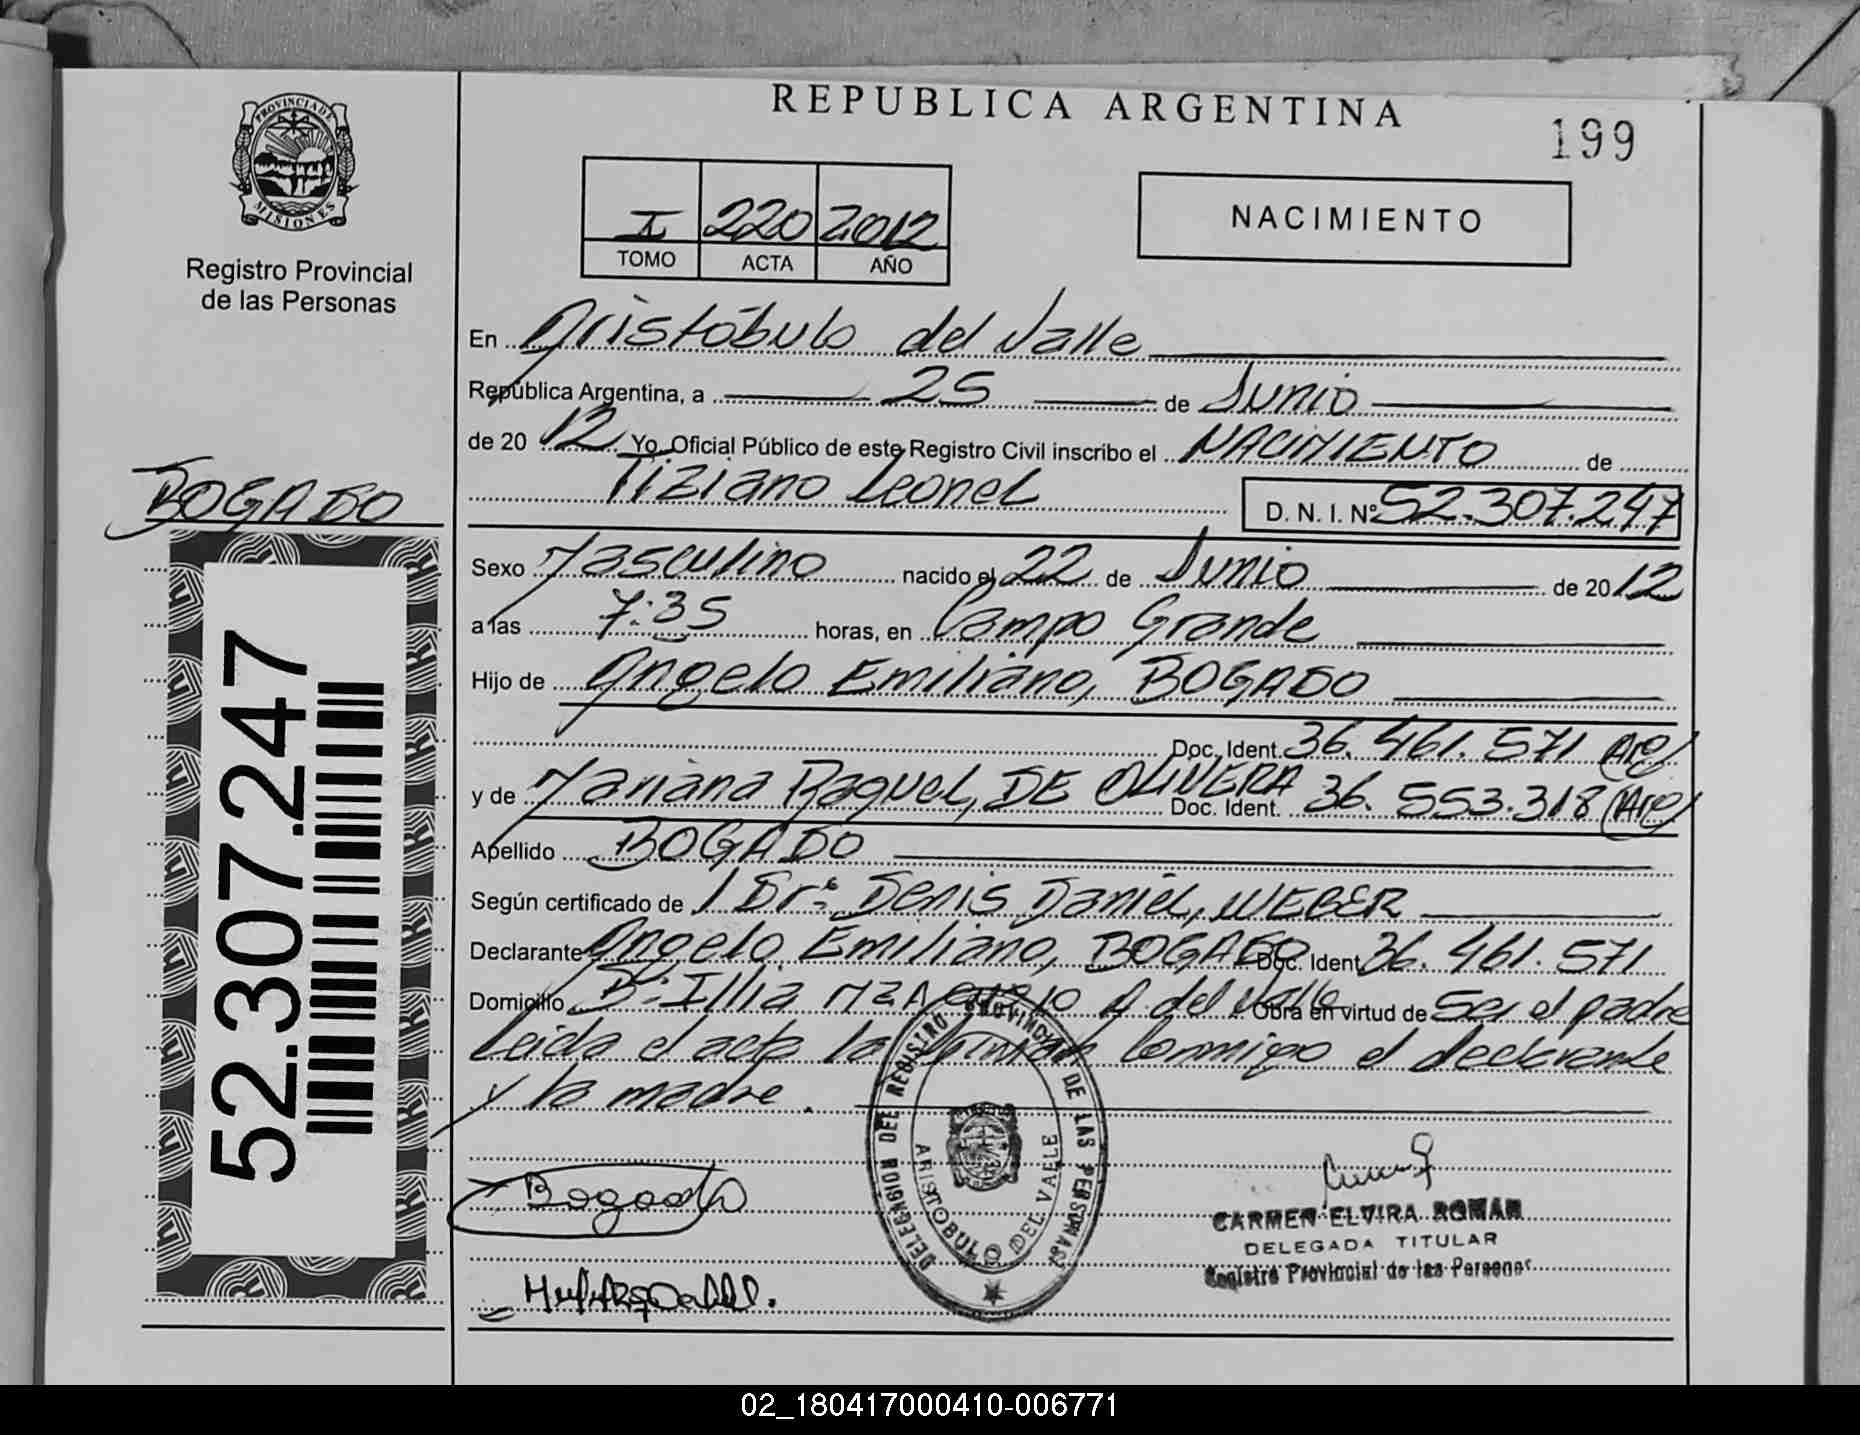 PROVINCIA DE
MISIONES
Registro Provincial
de las Personas
REPUBLICA ARGENTINA
199
I 220 2012
TOMO ACTA AÑO
NACIMIENTO
En Aristóbulo del Valle
República Argentina, a 25 de Junio
de 2012 Yo, Oficial Público de este Registro Civil inscribo el NACIMIENTO de
Tiziano Leonel D. N. I. Nº 52.307.247
BOGADO
52.307.247
Sexo Masculino nacido el 22 de Junio de 2012
a las 7:35 horas, en Campo Grande
Hijo de Angelo Emiliano, BOGADO
Doc. Ident. 36.461.571 (Arg)
y de Mariana Raquel, DE OLIVERA Doc. Ident. 36.553.318 (Arg)
Apellido BOGADO
Según certificado de / Dr: Denis Daniel, WEBER
Declarante Angelo Emiliano, BOGADO Doc. Ident. 36.461.571
Domicilio Bº Illia MZ A 10 A. del Valle Obra en virtud de Ser el padre
Leida el acta la firman conmigo el declarante
y la madre.
Bogado
DELEGACION DEL REGISTRO PROVINCIAL DE LAS PERSONAS
ARISTOBULO DEL VALLE
CARMEN ELVIRA ROMAN
DELEGADA TITULAR
Registro Provincial de las Personas
02_180417000410-006771